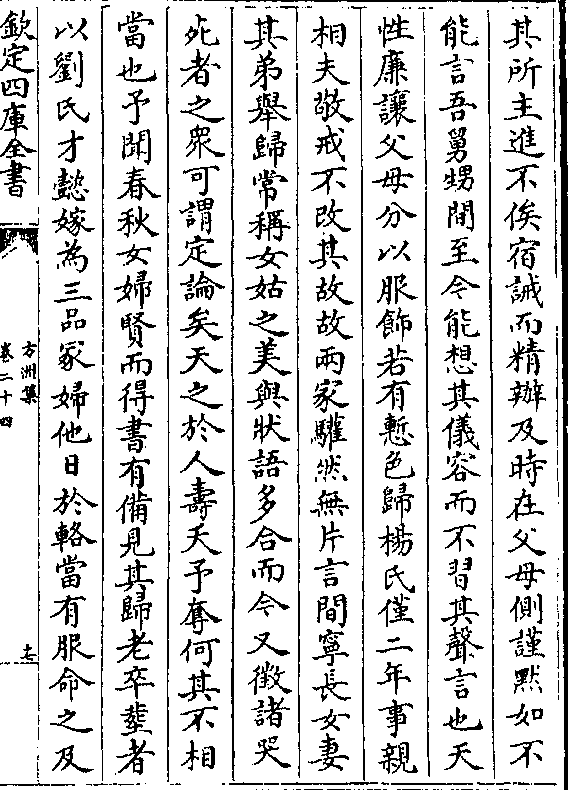 其所主進不俟宿誡而精辦及時在父母側謹默如不
能言吾舅甥間至今能想其儀容而不習其聲言也天
性廉讓父母分以服飾若有慙色歸楊氏僅二年事親
相夫敬戒不改其故故兩家驩然無片言間寧長女妻
其弟舉歸常稱女姑之美與狀語多合而今又徴諸哭
死者之衆可謂定論矣天之於人壽夭予奪何其不相
當也予聞春秋女婦賢而得書有備見其歸老卒塟者
以劉氏才懿嫁為三品冢婦他日於輅當有服命之及
欽定四庫全書
方洲集
卷二十四